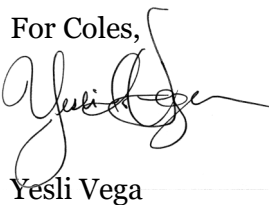 For Coles,
Yesli Vega
Yesli Vega